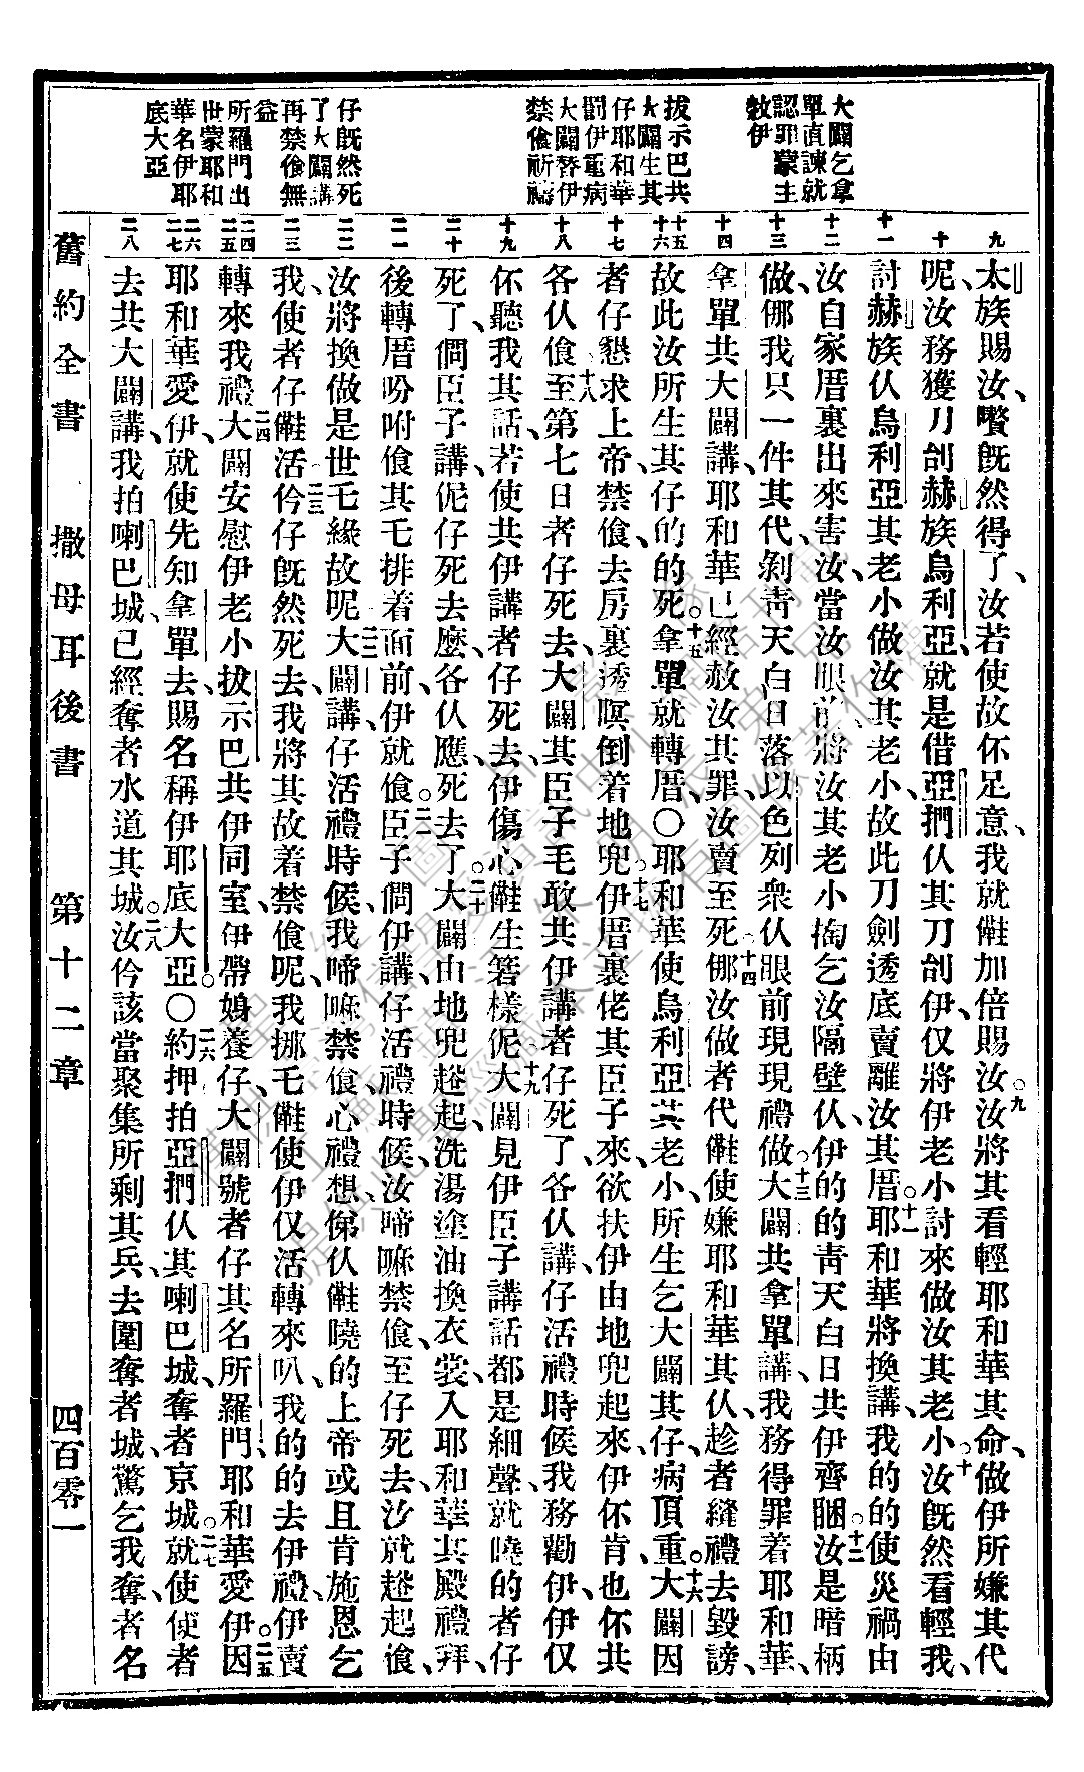 大闢乞拿
單直諫就
認罪蒙主
敕伊
拔示巴共
大闢生其
仔耶和華
罰伊電病
大闢替伊
禁飡祈禱
仔旣然死
了大闢講
再禁飡無
益
所羅門出
世蒙耶和
華名伊耶
底大亞
九
十
十一
十二
十三
十四
十五
十六
十七
十八
十九
二十
二一
二二
二三
二四
二五
二六
二七
二八
太族賜汝、嚟旣然得了、汝若使故伓足意、我就儺加倍賜汝○九汝將其看輕耶和華其命、做伊所嫌其代
呢汝務獲刀刣赫族烏利亞、就是借亞捫仈其刀刣伊、仅將伊老小討來做汝其老小○十汝旣然看輕我、
討赫族仈烏利亞其老小做汝其老小、故此刀劍透底賣離汝其厝○十一耶和華將換講、我的的使災禍由
汝自家厝裏出來害汝、當汝眼前、將汝其老小掏乞汝隔壁仈、伊的的靑天白日共伊齊睏○十二汝是暗柄
做、㑚我只一件其代、剝靑天白日落以色列衆仈眼前現現禮做○十三大闢共拿單講、我務得罪着耶和華、
拿單共大闢講、耶和華已經赦汝其罪、汝賣至死○十四㑚汝做者代儺使嫌耶和華其仈、趁者縫禮去毀謗、
故此汝所生其仔的的死○十五拿單就轉厝、○耶和華使烏利亞其老小、所生乞大闢其仔、病頂重○十六大闢因
者仔懇求上帝、禁飡、去房裏透暝倒着地兜○十七伊厝裏佬其臣子來、欲扶伊由地兜起來、伊伓肯、也伓共
各仈飡○十八至第七日者仔死去、大闢其臣子毛敢共伊講者仔死了、各仈講、仔活禮時候、我務勸伊、伊仅
伓聽我其話、若使共伊講者仔死去、伊傷心儺生箬樣伲○十九大闢見伊臣子講話都是細聲、就曉的者仔
死了、問臣子講、伲仔死去麼、各仈應、死去了○二十大闢由地兜趒起、洗湯塗油換衣裳、入耶和華其殿禮拜、
後轉厝吩咐飡其乇排着面前、伊就飡○二一臣子問伊講、仔活禮時候、汝啼嘛禁飡、至仔死去、汝就趒起飡、
汝將換做是世乇緣故呢○二二大闢講、仔活禮時候、我啼嘛禁飡、心禮想、俤仈儺曉的上帝或且肯施恩乞
我、使者仔儺活○二三仱仔旣然死去、我將其故着禁飡呢、我挪乇儺使伊仅活轉來叭、我的的去伊禮、伊賣
轉來我禮○二四大闢安慰伊老小拔示巴、共伊同室、伊帶娠養仔、大闢號者仔其名所羅門、耶和華愛伊○二五因
耶和華愛伊、就使先知拿單去賜名稱伊耶底大亞○○二六約押拍亞捫仈其喇巴城、奪者京城○二七就使使者
去共大闢講、我拍喇巴城、已經奪者水道其城○二八汝仱該當聚集所剩其兵、去圍奪者城、驚乞我奪者名
舊約全書　撒母耳後書　第十二章　四百零一